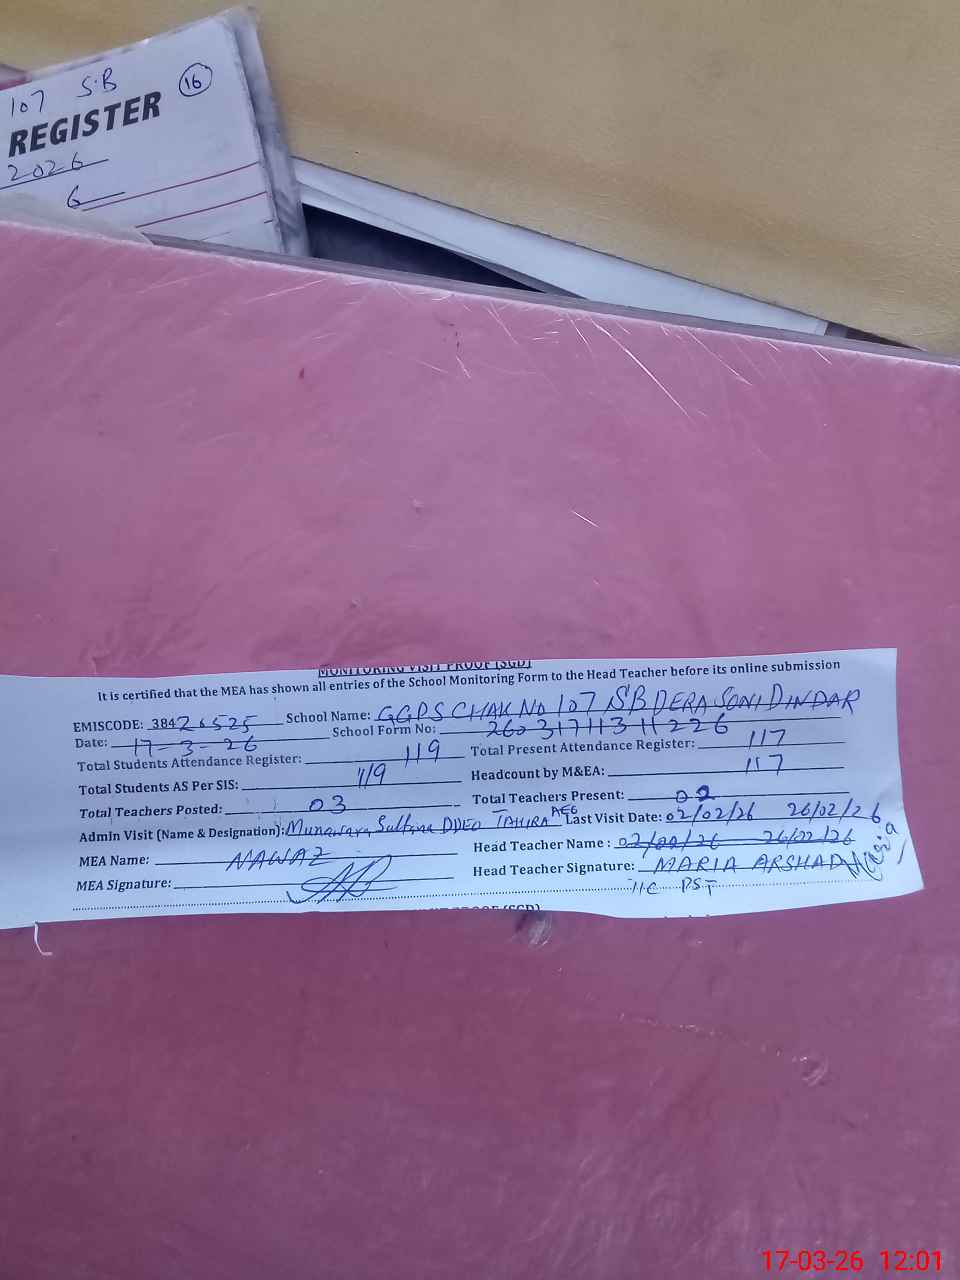 107 S.B 16
REGISTER
2026
6
MONITORING VISIT PROOF (SGD)
It is certified that the MEA has shown all entries of the School Monitoring Form to the Head Teacher before its online submission
EMISCODE: 38426525 School Name: GGPS CHAK No 107 SB DERA SONI DINDAR
Date: 17-3-26 School Form No: 26031711311226
Total Students Attendance Register: 119 Total Present Attendance Register: 117
Total Students AS Per SIS: 119 Headcount by M&EA: 117
Total Teachers Posted: 03 Total Teachers Present: 02
Admin Visit (Name & Designation): Munawara Sultana DDEO TAHIRA AEO Last Visit Date: 02/02/26 26/02/26
MEA Name: NAWAZ Head Teacher Name : 02/02/26 26/02/26
MEA Signature: Head Teacher Signature: MARIA ARSHAD Maria
I/C PST
17-03-26 12:01